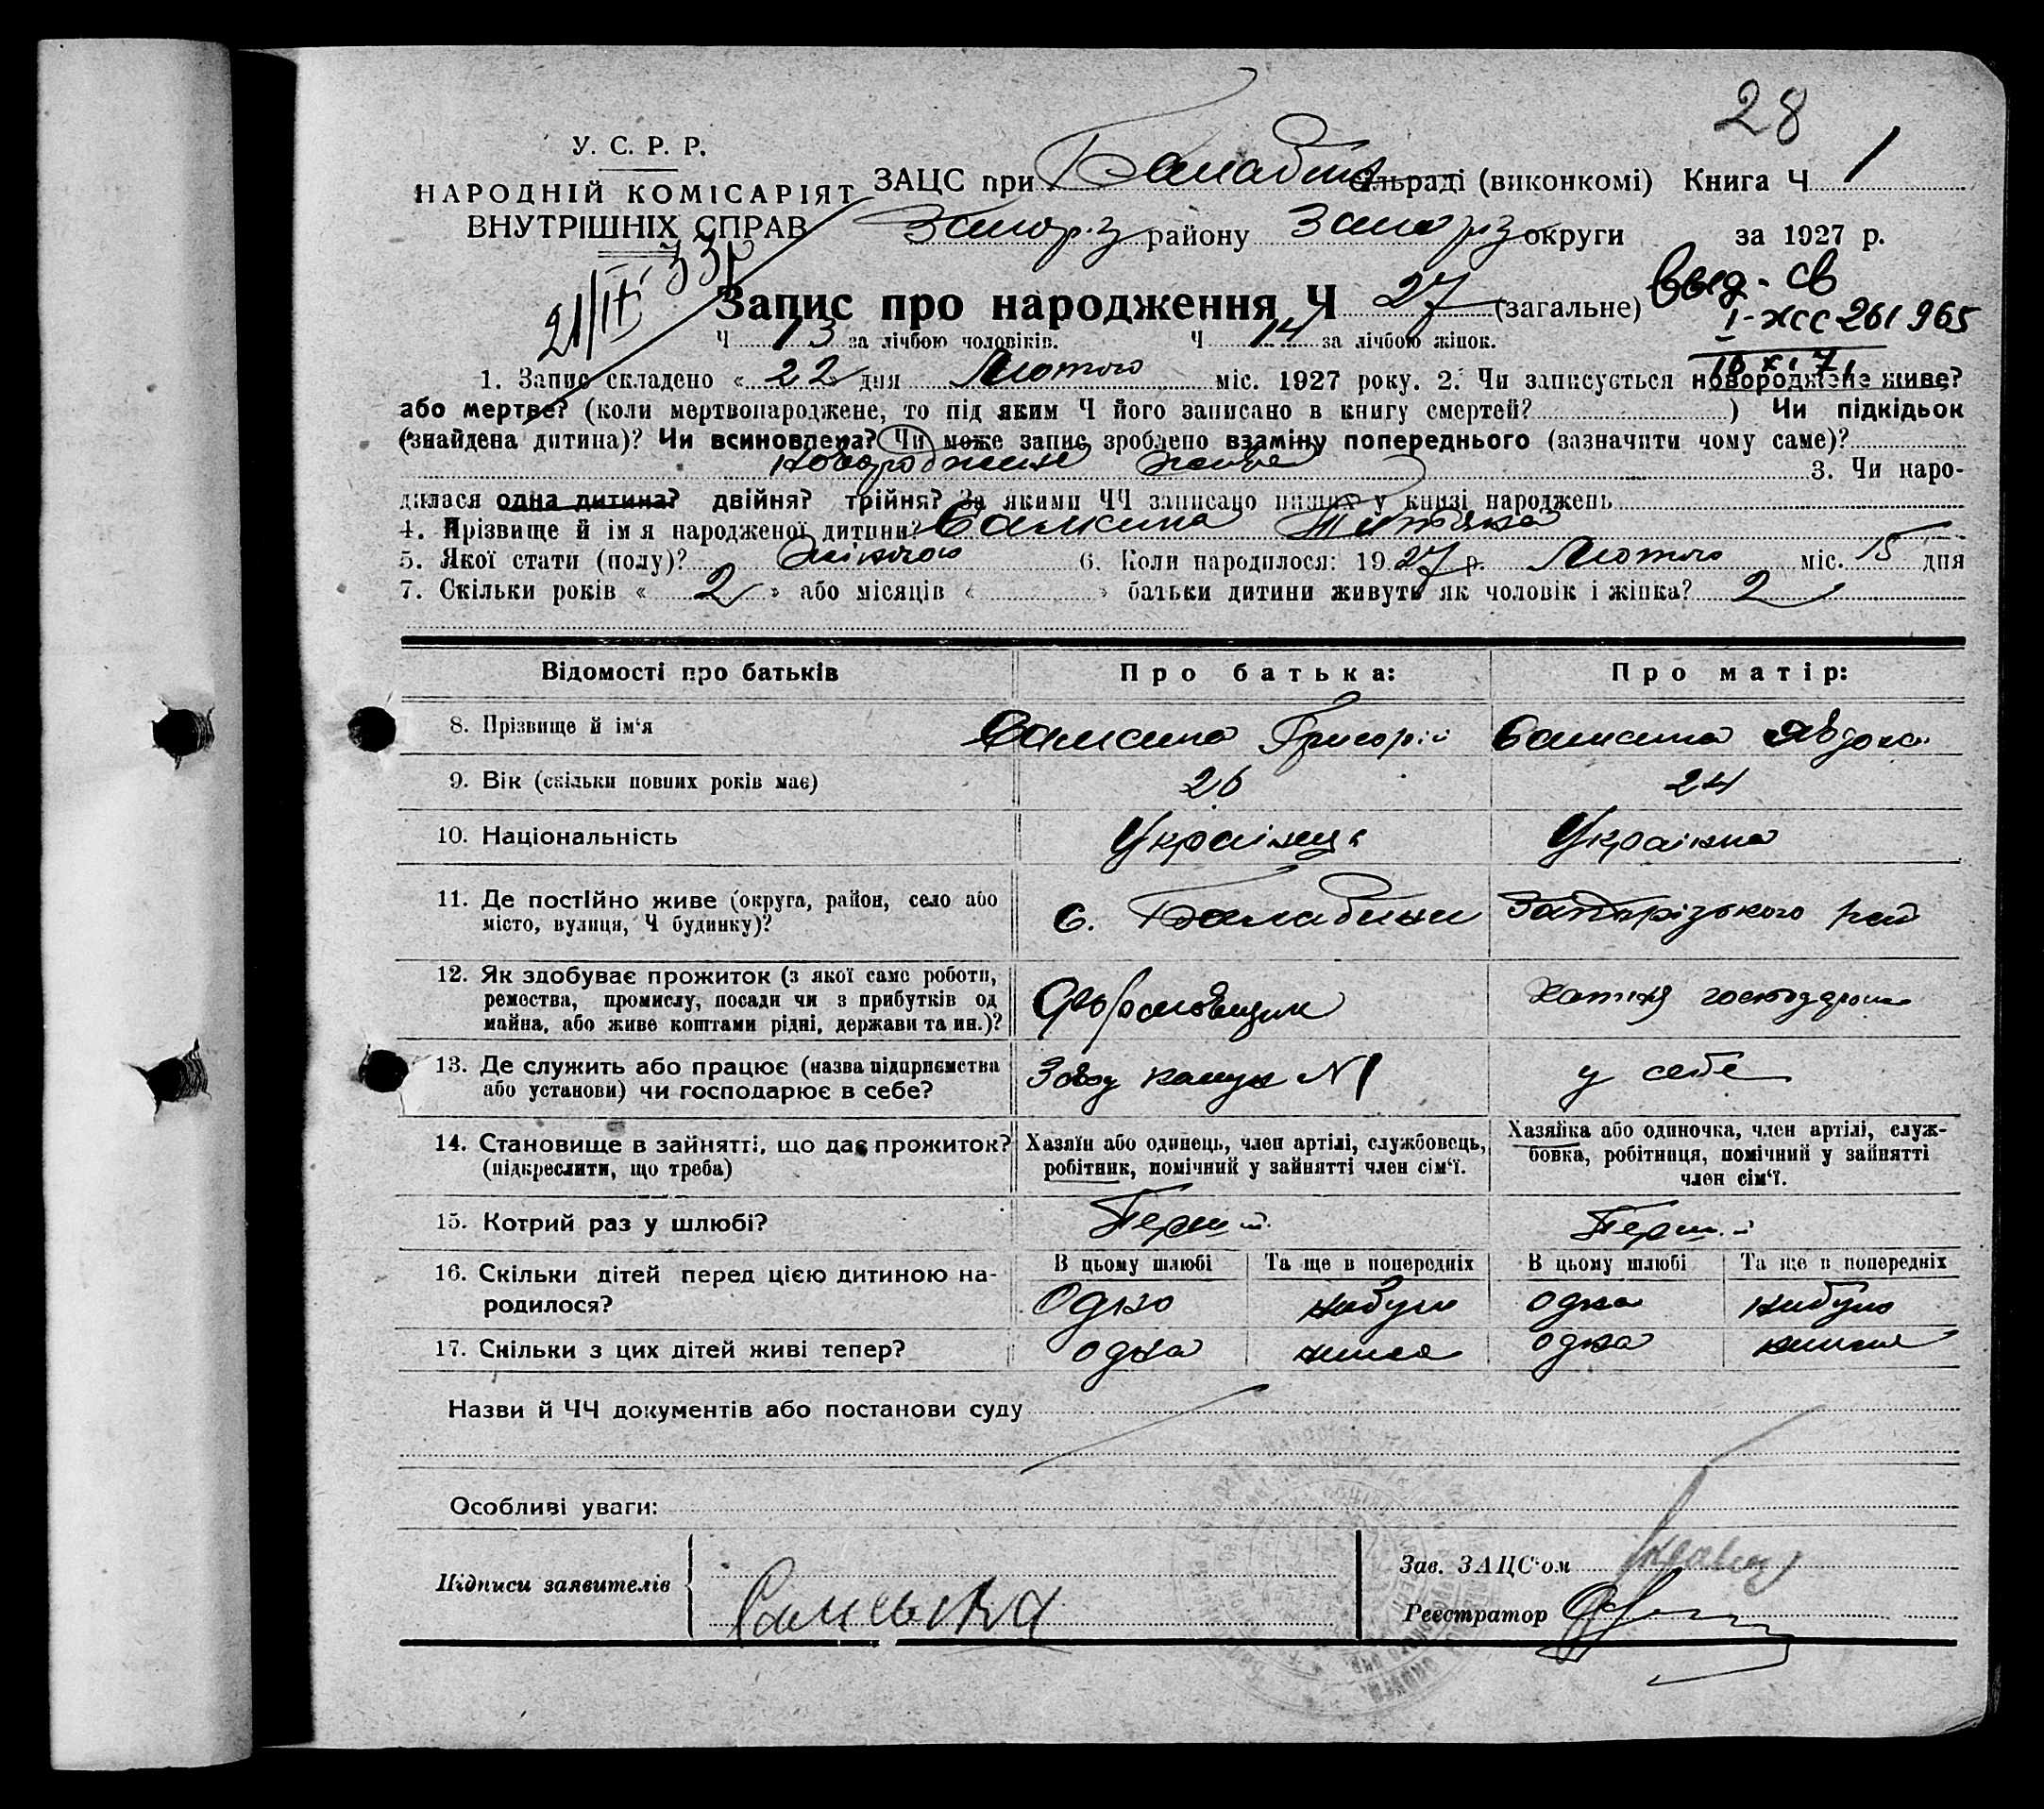 28
У. С. Р. Р.
НАРОДНІЙ КОМІСАРІЯТ
ВНУТРІШНІХ СПРАВ
ЗАЦС при Балабин сільраді (виконкомі) Книга Ч 1
Запор.з району Запорз округи за 1927 р.
21/IX 33р
Запис про народження Ч 27 (загальне)
выд. св
I-ЖСС 261965
Ч 13 за лічбою чоловіків. Ч 14 за лічбою жінок.
1. Запис складено « 22 » дня Лютого міс. 1927 року. 2. Чи записується новороджене живе?
або мертве? (коли мертвонароджене, то під яким Ч його записано в книгу смертей? ) Чи підкідьок
(знайдена дитина)? Чи всиновлена? Чи може запис зроблено взаміну попереднього (зазначити чому саме)?
новороджене живе 3. Чи наро-
дилася одна дитина? двійня? трійня? За якими ЧЧ записано інших у книзі народжень
4. Прізвище й ім'я народженої дитини?
5. Якої стати (полу)? жіночою 6. Коли народилося: 1927 р. Лютого міс. 15 дня
7. Скільки років « 2 » або місяців « » батьки дитини живуть як чоловік і жінка? 2
Відомості про батьків Про батька: Про матір:
8. Прізвище й ім'я Григорій
9. Вік (скільки повних років має) 26 24
10. Національність Українець Українка
11. Де постійно живе (округа, район, село або
місто, вулиця, Ч будинку)? с. Балабини Запорізького рай
12. Як здобуває прожиток (з якої саме роботи,
ремества, промислу, посади чи з прибутків од
майна, або живе коштами рідні, держави та ин.)? Хатня
13. Де служить або працює (назва підприємства
або установи) чи господарює в себе? Завод Комун N1 у себе
14. Становище в зайнятті, що дає прожиток?
(підкреслити, що треба)
Хазяїн або одинець, член артілі, службовець,
робітник, помічний у зайнятті член сім'ї.
Хазяйка або одиночка, член артілі, служ-
бовка, робітниця, помічний у зайнятті
член сім'ї.
15. Котрий раз у шлюбі? Перший Перший
16. Скільки дітей перед цією дитиною на-
родилося?
В цьому шлюбі Та ще в попередніх В цьому шлюбі Та ще в попередніх
Одно небуло одна небуло
17. Скільки з цих дітей живі тепер? одна нима одна нимая
Назви й ЧЧ документів або постанови суду
Особливі уваги:
Підписи заявителів
Зав. ЗАЦС'ом
Реєстратор